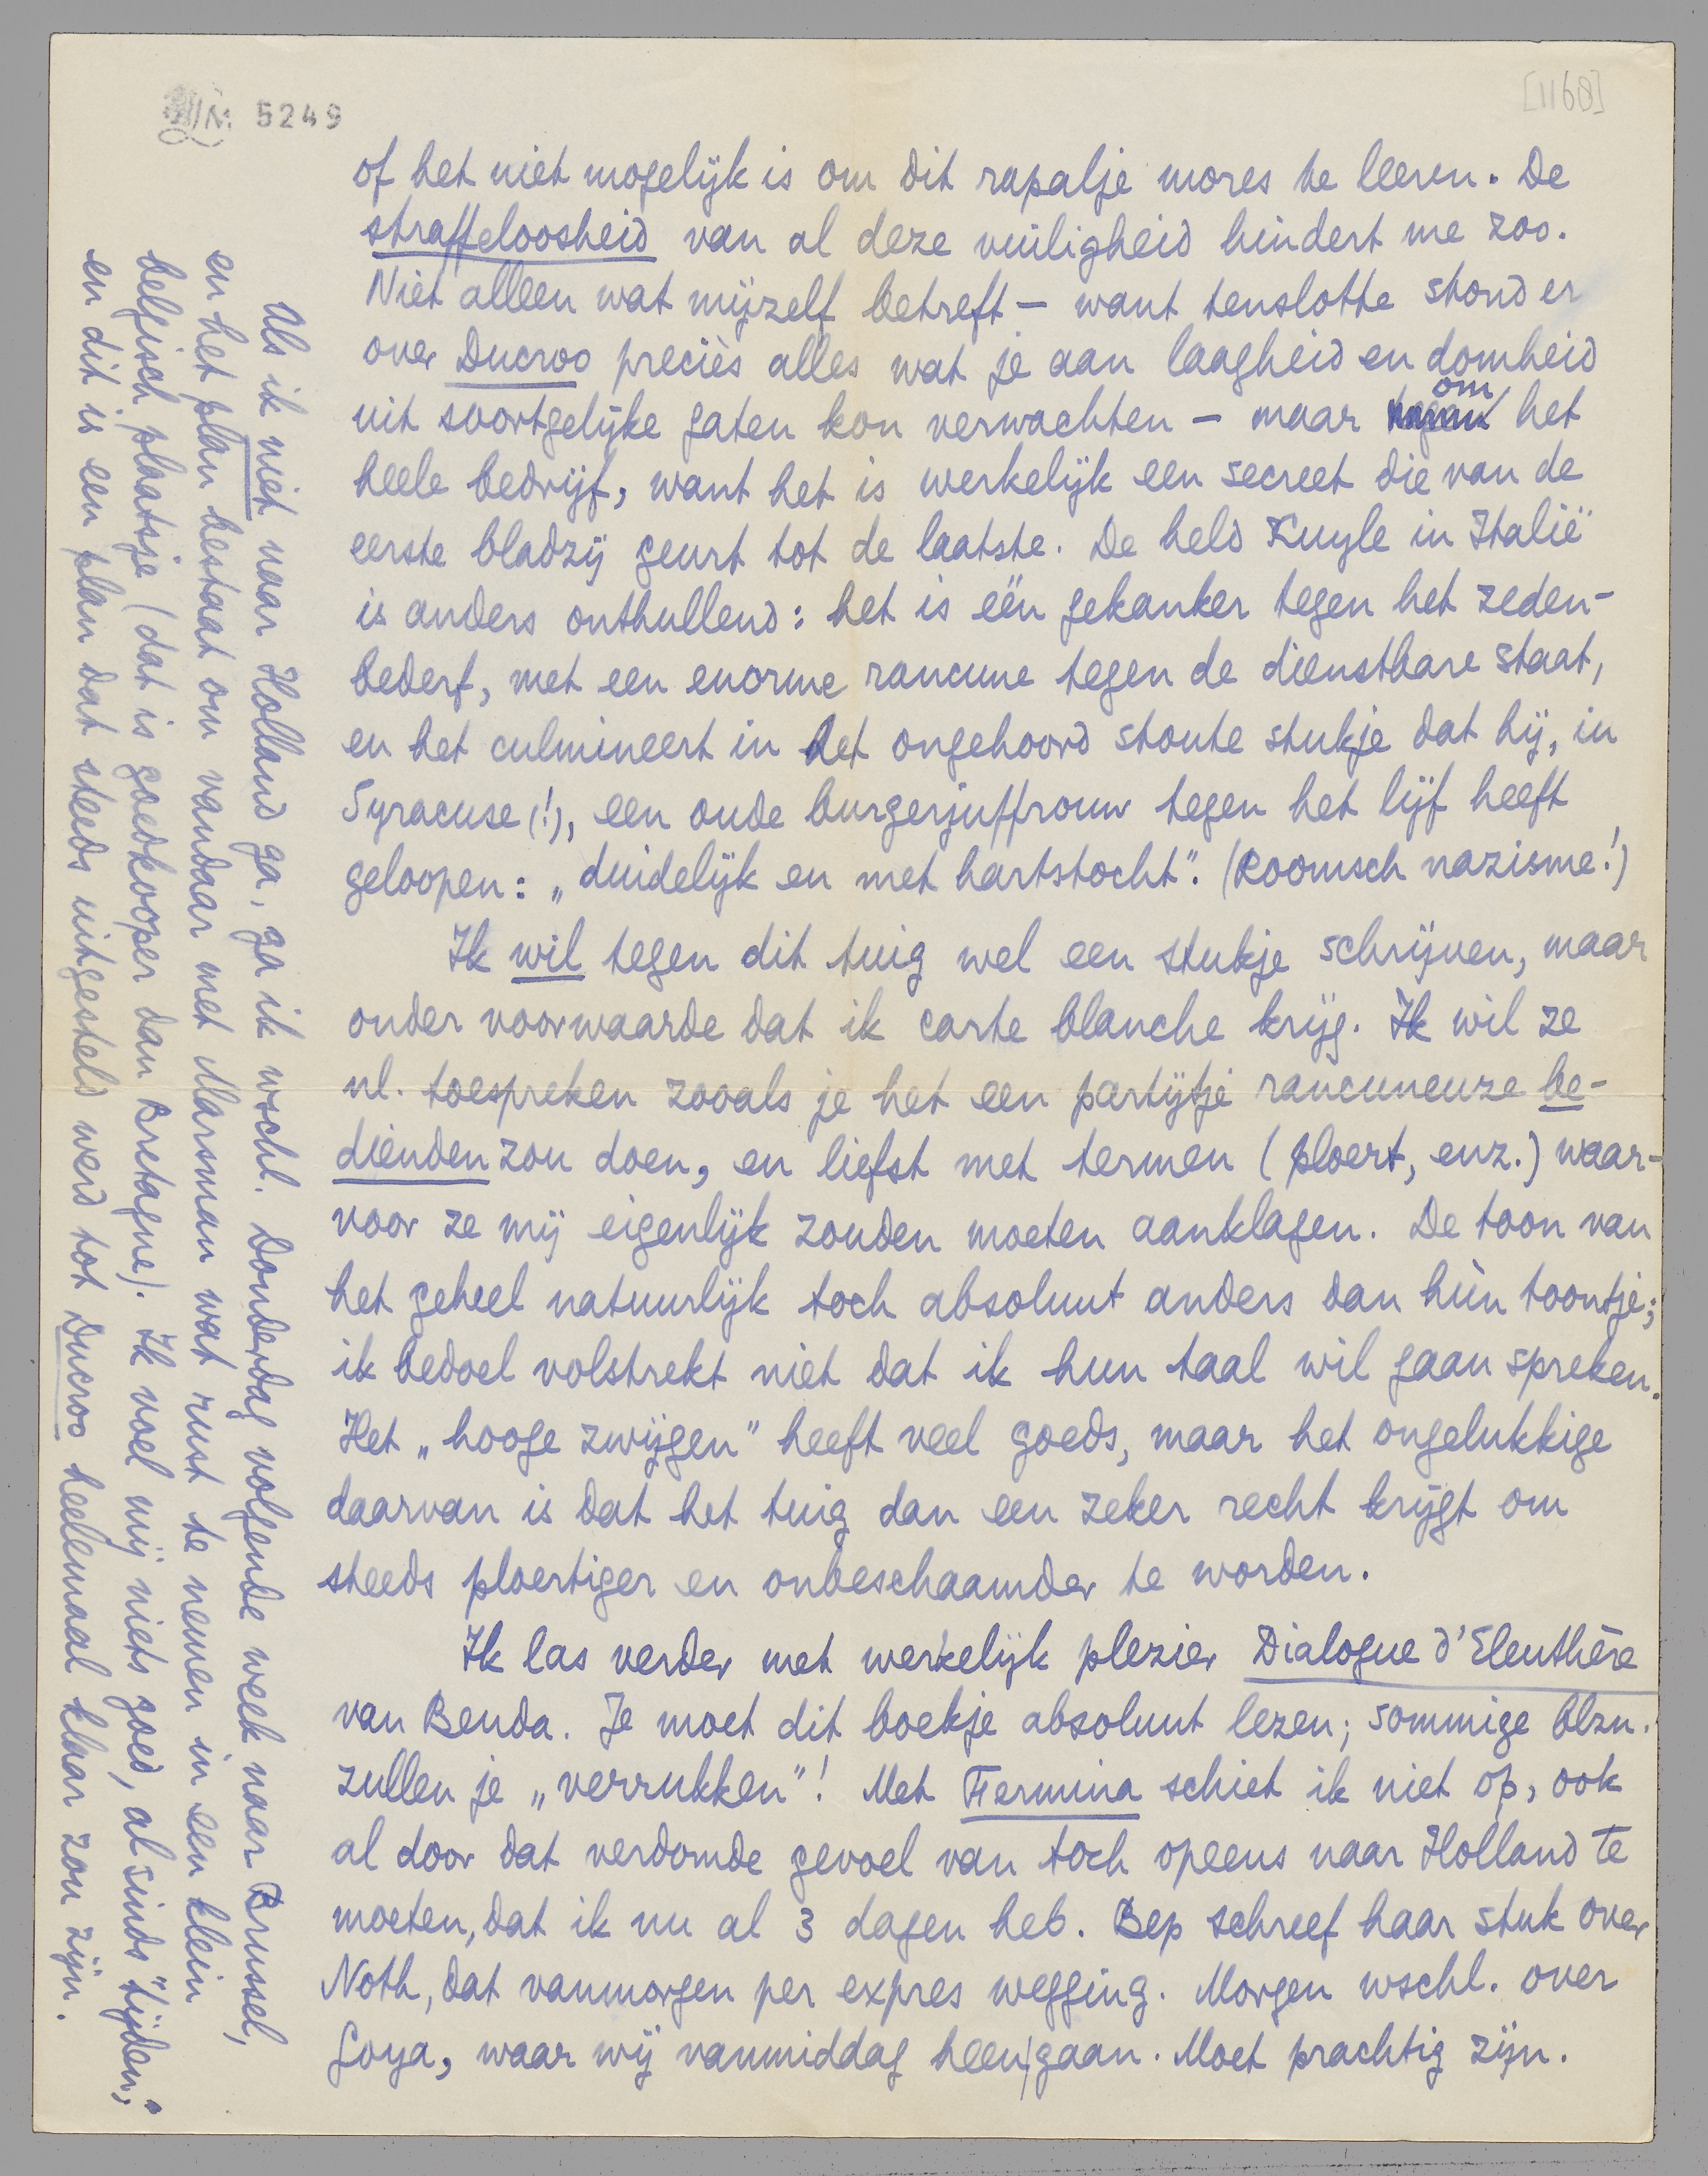 5249
[1168]
of het niet mogelijk is om dit rapalje mores te leeren. De
straffeloosheid van al deze vuiligheid hindert me zoo.
Niet alleen wat mijzelf betreft – want tenslotte stond er
over Ducroo preciès alles wat je aan laagheid en domheid
uit soortgelijke gaten kon verwachten – maar om het
heele bedrijf, want het is werkelijk een secreet die van de
eerste bladzij geurt tot de laatste. De held Kuyle in Italië
is anders onthullend: het is één gekanker tegen het zeden-
bederf, met een enorme rancune tegen de dienstbare staat,
en het culmineert in het ongehoord stoute stukje dat hij, in
Syracuse (!), een oude burgerjuffrouw tegen het lijf heeft
geloopen: „duidelijk en met hartstocht”. (Roomsch nazisme!)
Ik wil tegen dit tuig wel een stukje schrijven, maar
onder voorwaarde dat ik carte blanche krijg. Ik wil ze
nl. toespreken zooals je het een partijtje rancuneuze be-
dienden zou doen, en liefst met termen (ploert, enz.) waar-
voor ze mij eigenlijk zouden moeten aanklagen. De toon van
het geheel natuurlijk toch absoluut anders dan hùn toontje;
ik bedoel volstrekt niet dat ik hun taal wil gaan spreken.
Het „hooge zwijgen” heeft veel goeds, maar het ongelukkige
daarvan is dat het tuig dan een zeker recht krijgt om
steeds ploertiger en onbeschaamder te worden.
Ik las verder met werkelijk plezier Dialogue d'Eleuthère
van Benda. Je moet dit boekje absoluut lezen; sommige blzn.
zullen je „verrukken”! Met Hermina schiet ik niet op, ook
al door dat verdomde gevoel van toch opeens naar Holland te
moeten, dat ik nu al 3 dagen heb. Bep schreef haar stuk over
Noth, dat vanmorgen per expres wegging. Morgen wschl. over
Goya, waar wij vanmiddag heen gaan. Moet prachtig zijn.
Als ik niet naar Holland ga, ga ik wschl. Donderdag volgende week naar Brussel,
en het plan bestaat om vandaar met Marsman wat rust te nemen in een klein
belgisch plaatsje (dat is goedkooper dan Bretagne). Ik voel mij niets goed, al sinds „tijden”;
en dit is een plan dat steeds uitgesteld werd tot Ducroo heelemaal klaar zou zijn.